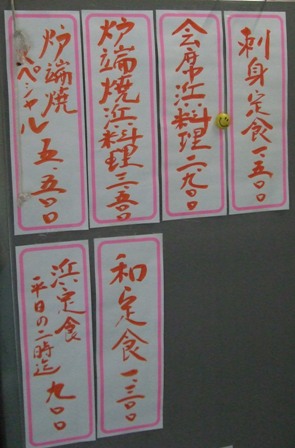 刺身定食 一、五〇〇
会席浜料理 二、九〇〇
炉端焼浜料理 三、五〇〇
炉端焼スペシャル 五、五〇〇
和定食 一、三〇〇
浜定食 平日の二時迄 九〇〇